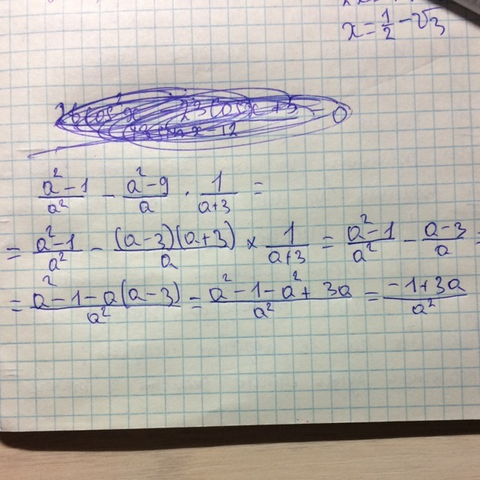 x = 1/2 - √3
(a² - 1)/a² - (a² - 9)/a · 1/(a+3) =
= (a² - 1)/a² - ((a-3)(a+3))/a × 1/(a+3) = (a² - 1)/a² - (a-3)/a =
= (a² - 1 - a(a-3))/a² = (a² - 1 - a² + 3a)/a² = (-1 + 3a)/a²